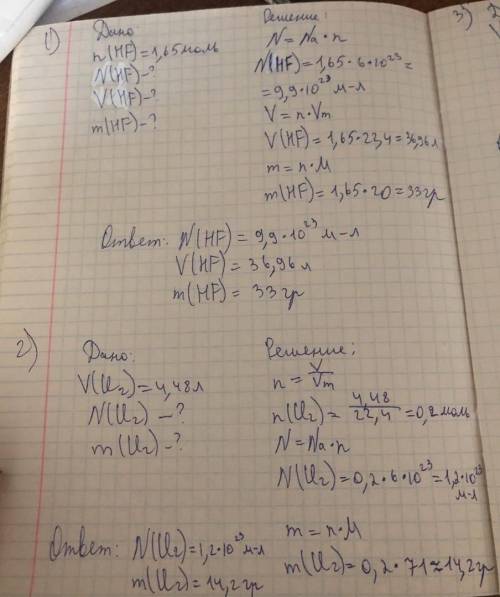 1) Дано
n(HF)=1,65моль
N(HF)-?
V(HF)-?
m(HF)-?
Решение:
N=Na·n
N(HF)=1,65·6·10²³=
=9,9·10²³ м-л
V=n·Vm
V(HF)=1,65·22,4=36,96л
m=n·M
m(HF)=1,65·20=33гр
Ответ: N(HF)=9,9·10²³ м-л
V(HF)=36,96л
m(HF)=33гр
2) Дано:
V(Cl₂)=4,48л
N(Cl₂)-?
m(Cl₂)-?
Решение:
n=V/Vm
n(Cl₂)=4,48/22,4=0,2моль
N=Na·n
N(Cl₂)=0,2·6·10²³=1,2·10²³
м-л
m=n·M
m(Cl₂)=0,2·71≈14,2гр
Ответ: N(Cl₂)=1,2·10²³м-л
m(Cl₂)=14,2гр
3)